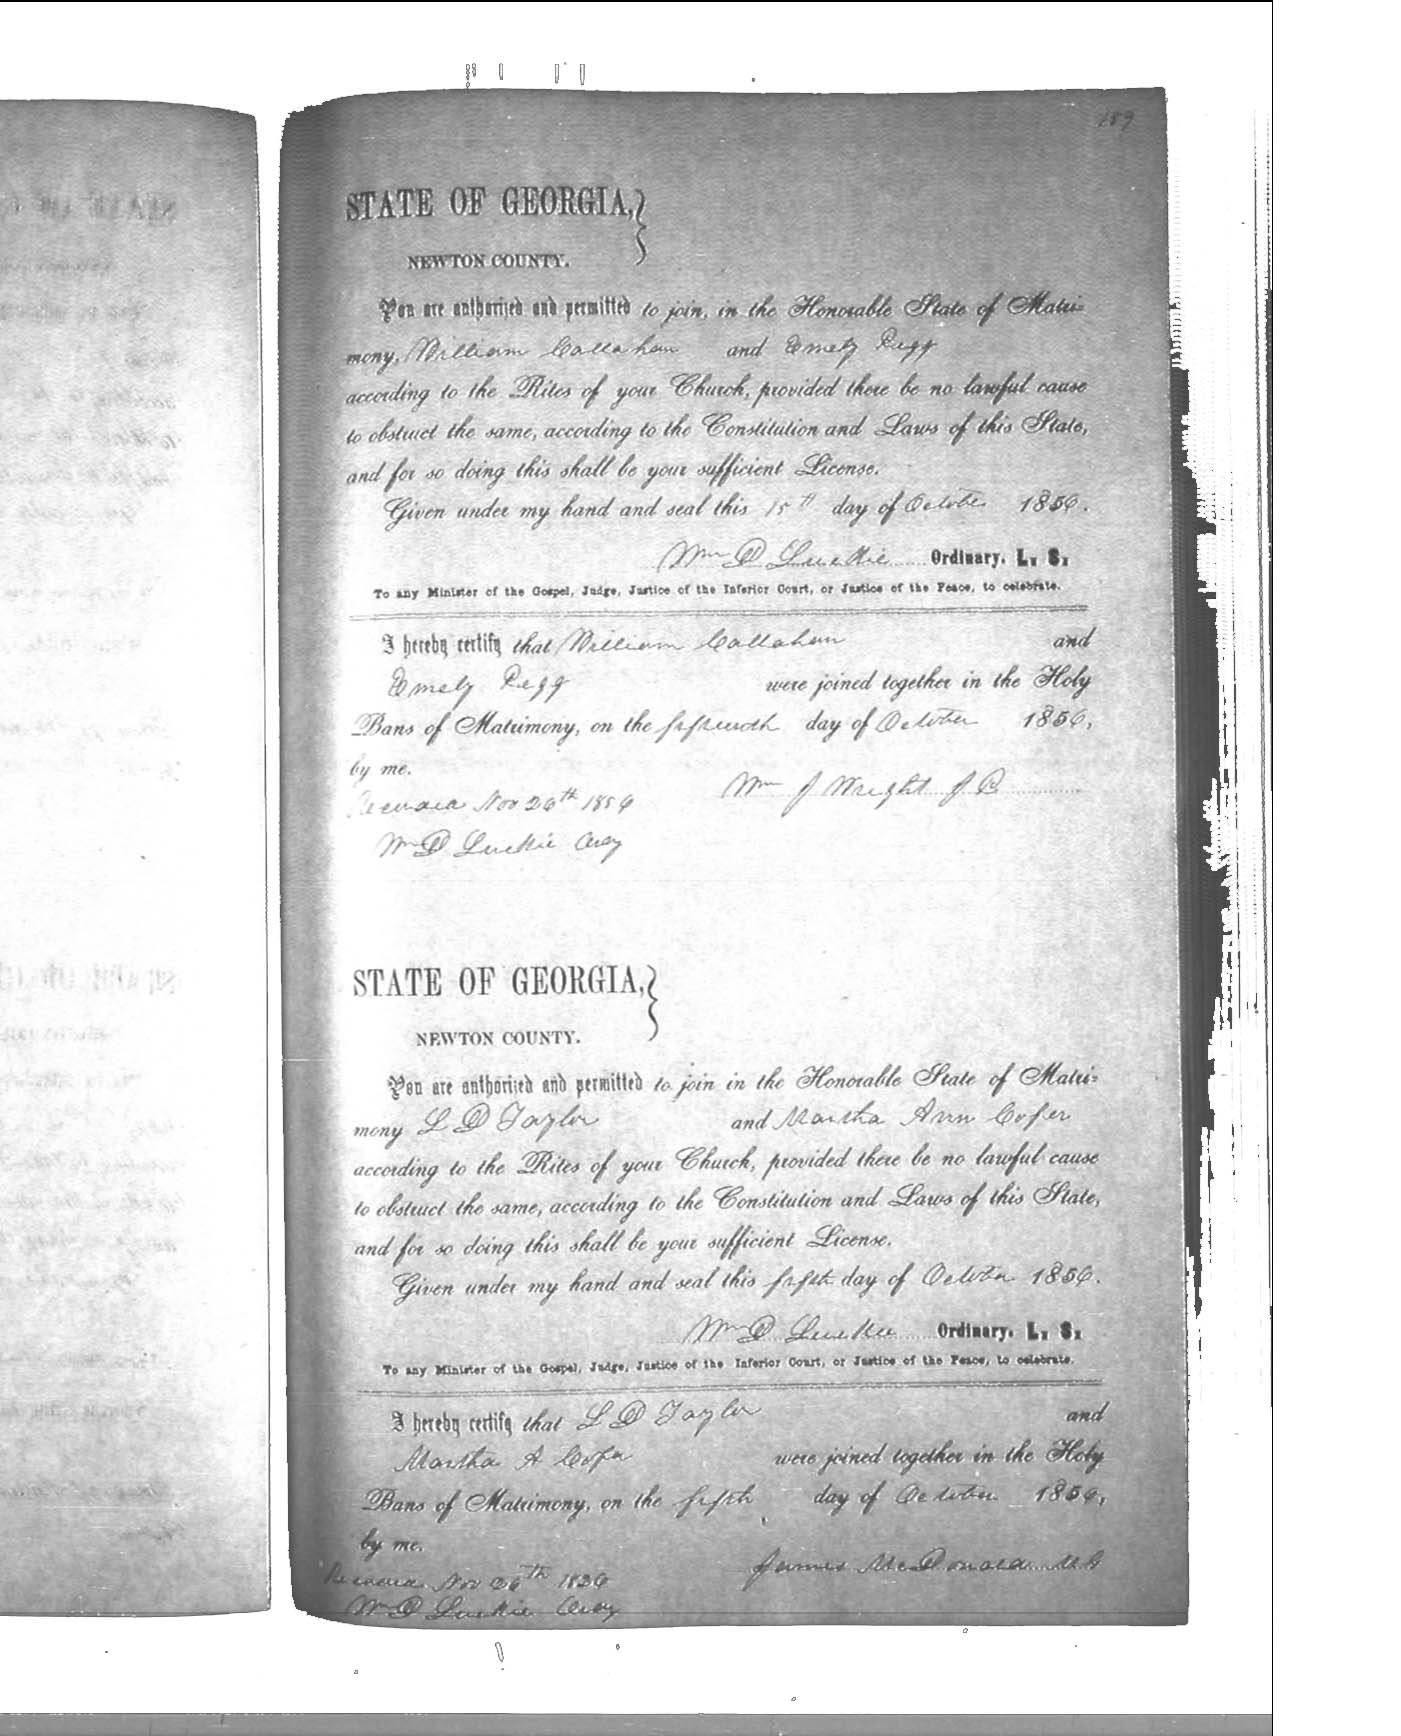 189
STATE OF GEORGIA,
NEWTON COUNTY.
You are authorized and permitted to join, in the Honorable State of Matri-
mony, William Callahan and Emely Pegg
according to the Rites of your Church, provided there be no lawful cause
to obstruct the same, according to the Constitution and Laws of this State,
and for so doing this shall be your sufficient License.
Given under my hand and seal this 15th day of October 1856.
Wm D Luckie Ordinary. L. S.
To any Minister of the Gospel, Judge, Justice of the Inferior Court, or Justice of the Peace, to celebrate.
I hereby certify that William Callahan and
Emely Pegg were joined together in the Holy
Bans of Matrimony, on the fifteenth day of October 1856,
by me.
Wm J Wright J P
Recorded Nov 26th 1856
Wm D Luckie Ordy
STATE OF GEORGIA,
NEWTON COUNTY.
You are authorized and permitted to join in the Honorable State of Matri-
mony L D Taylor and Martha Ann Cofer
according to the Rites of your Church, provided there be no lawful cause
to obstruct the same, according to the Constitution and Laws of this State,
and for so doing this shall be your sufficient License.
Given under my hand and seal this fifth day of October 1856.
Wm D Luckie Ordinary. L. S.
To any Minister of the Gospel, Judge, Justice of the Inferior Court, or Justice of the Peace, to celebrate.
I hereby certify that L D Taylor and
Martha A Cofer were joined together in the Holy
Bans of Matrimony, on the fifth day of October 1856,
by me.
James McDonald M G
Recorded Nov 26th 1856
Wm D Luckie Ordy